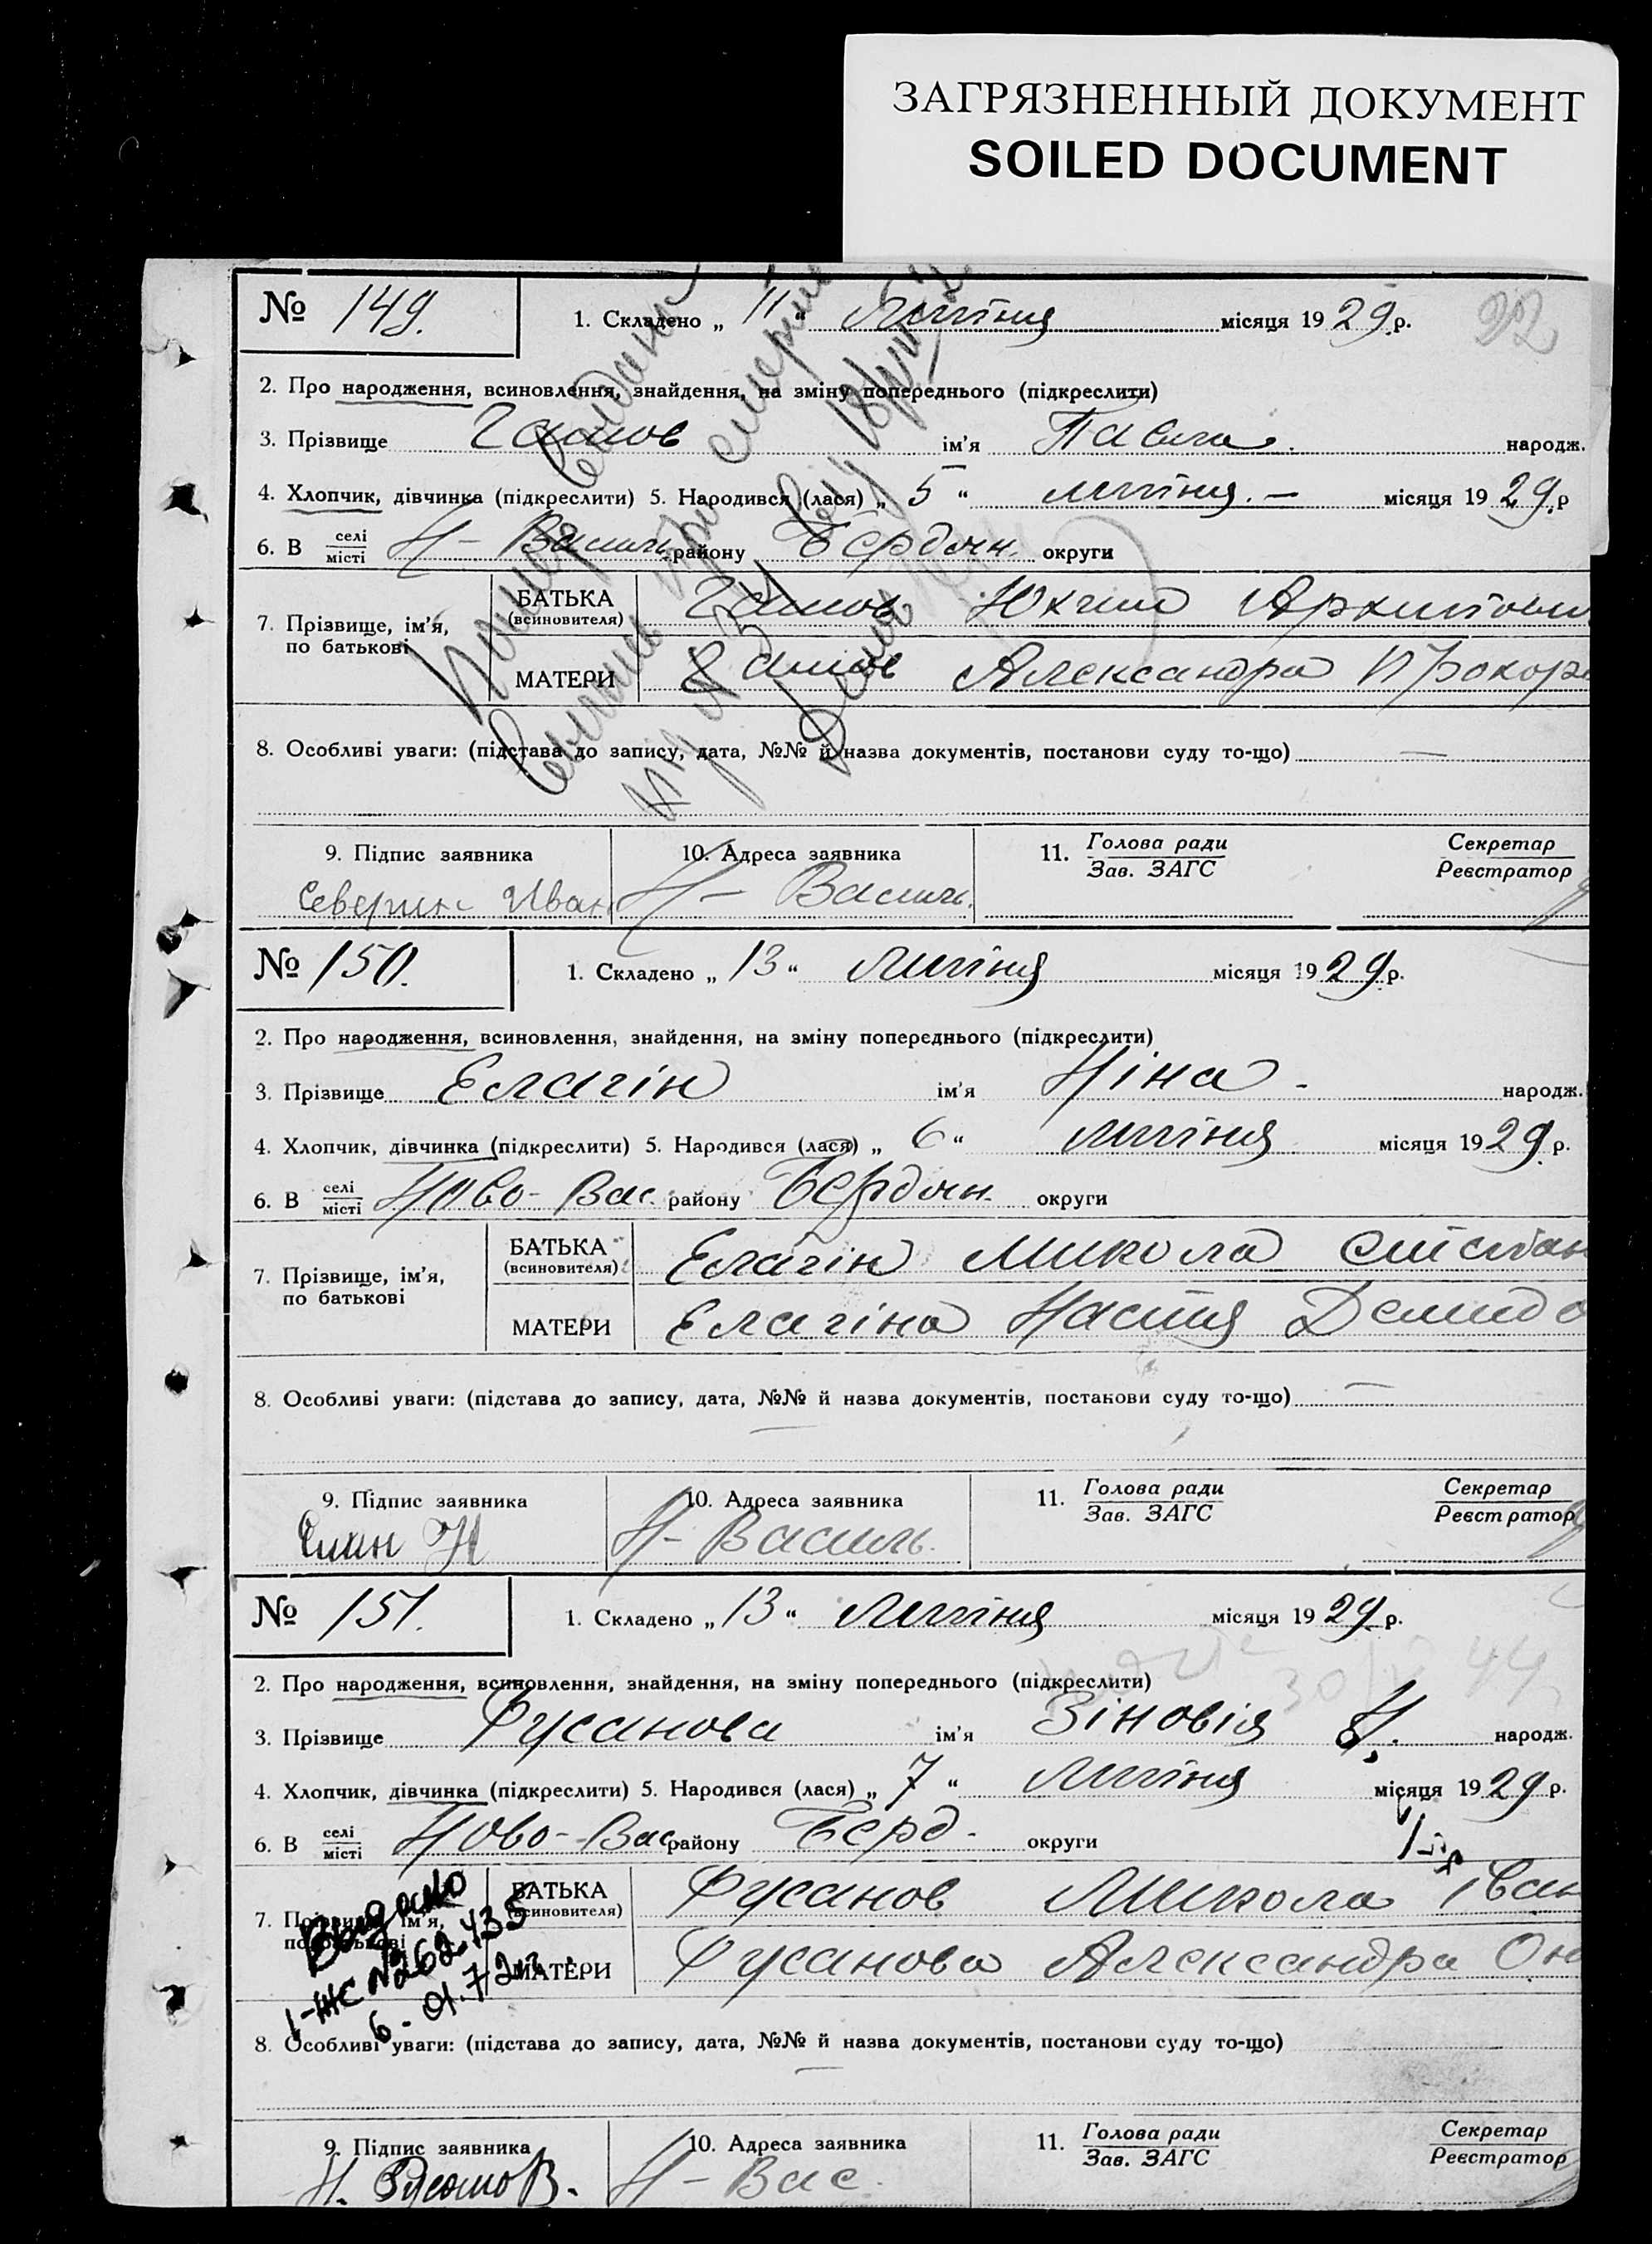 ЗАГРЯЗНЕННЫЙ ДОКУМЕНТ
SOILED DOCUMENT
№ 149. 1. Складено „ 11 “ Липня місяця 1929 р. 22
2. Про народження, всиновлення, знайдення, на зміну попереднього (підкреслити)
3. Прізвище ім'я Павло. народж.
4. Хлопчик, дівчинка (підкреслити) 5. Народився (лася) „ 5 “ липня. — місяця 1929 р
6. В селі/місті Н- Василь району Бердян. округи
7. Прізвище, ім'я, по батькові
БАТЬКА (всиновителя) Юхим Архипови
МАТЕРИ Александра Прохоро
8. Особливі уваги: (підстава до запису, дата, №№ й назва документів, постанови суду то-що) —
9. Підпис заявника 10. Адреса заявника 11. Голова ради/Зав. ЗАГС Секретар/Реєстратор
Северин Иван Н- Василь.
№ 150. 1. Складено „ 13 “ Липня місяця 1929 р.
2. Про народження, всиновлення, знайдення, на зміну попереднього (підкреслити)
3. Прізвище Елагін ім'я Ніна - народж.
4. Хлопчик, дівчинка (підкреслити) 5. Народився (лася) „ 6 “ липня місяця 1929 р.
6. В селі/місті Ново- Вас. району Бердян. округи
7. Прізвище, ім'я, по батькові
БАТЬКА (всиновителя) Елагін Микола Степан
МАТЕРИ Елагіна Настя Демидо
8. Особливі уваги: (підстава до запису, дата, №№ й назва документів, постанови суду то-що) —
9. Підпис заявника 10. Адреса заявника 11. Голова ради/Зав. ЗАГС Секретар/Реєстратор
Н Н- Василь.
№ 151. 1. Складено „ 13 “ Липня місяця 1929 р.
2. Про народження, всиновлення, знайдення, на зміну попереднього (підкреслити)
3. Прізвище Русанова ім'я Зіновія Н. народж.
4. Хлопчик, дівчинка (підкреслити) 5. Народився (лася) „ 7 “ Липня місяця 1929 р.
6. В селі/місті Ново- Вас. району Берд. округи
7. Прізвище, ім'я, по батькові
БАТЬКА (всиновителя) Русанов Микола Іван
МАТЕРИ Русанова Александра Он
Видано
I-ЖС №262435
8. Особливі уваги: (підстава до запису, дата, №№ й назва документів, постанови суду то-що)
9. Підпис заявника 10. Адреса заявника 11. Голова ради/Зав. ЗАГС Секретар/Реєстратор
Н. Русанов. Н- Вас.